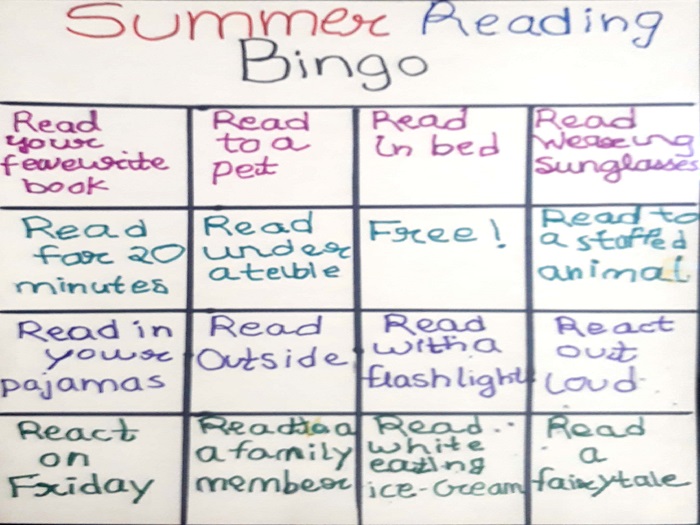 Summer Reading
Bingo
Read
your
fevewrite
book
Read
to a
pet
Read
in bed
Read
Wearing
sunglasses
Read
for 20
minutes
Read
under
a teible
Free!
Read to
a stoffed
animal
Read in
your
pajamas
Read
Outside
Read
with a
flashlight
React
out
loud
React
on
Friday
Read to a
a family
member
Read
white
eating
ice-cream
Read
a
fairytale